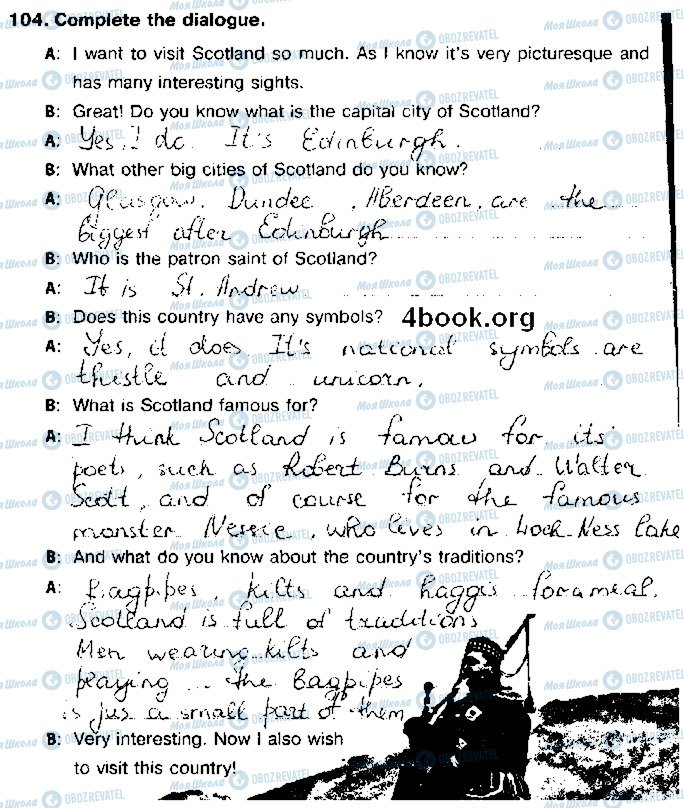 104. Complete the dialogue.
A: I want to visit Scotland so much. As I know it's very picturesque and
has many interesting sights.
B: Great! Do you know what is the capital city of Scotland?
A: Yes, I do. It's Edinburgh.
B: What other big cities of Scotland do you know?
A: Glasgow, Dundee, Aberdeen, are the
biggest after Edinburgh
B: Who is the patron saint of Scotland?
A: It is St. Andrew
B: Does this country have any symbols? 4book.org
A: Yes, it does It's national symbols are
thistle and unicorn.
B: What is Scotland famous for?
A: I think Scotland is famou for its
poets, such as Robert Burns and Walter
Scott, and of course for the famous
monster Nessie, who lives in Loch-Ness lake
B: And what do you know about the country's traditions?
A: Bagpipes, kilts and haggis for a meal.
Scotland is full of traditions
Men wearing kilts and
playing the bagpipes
is jus a small part of them
B: Very interesting. Now I also wish
to visit this country!
Моя Школа OBOZREVATEL